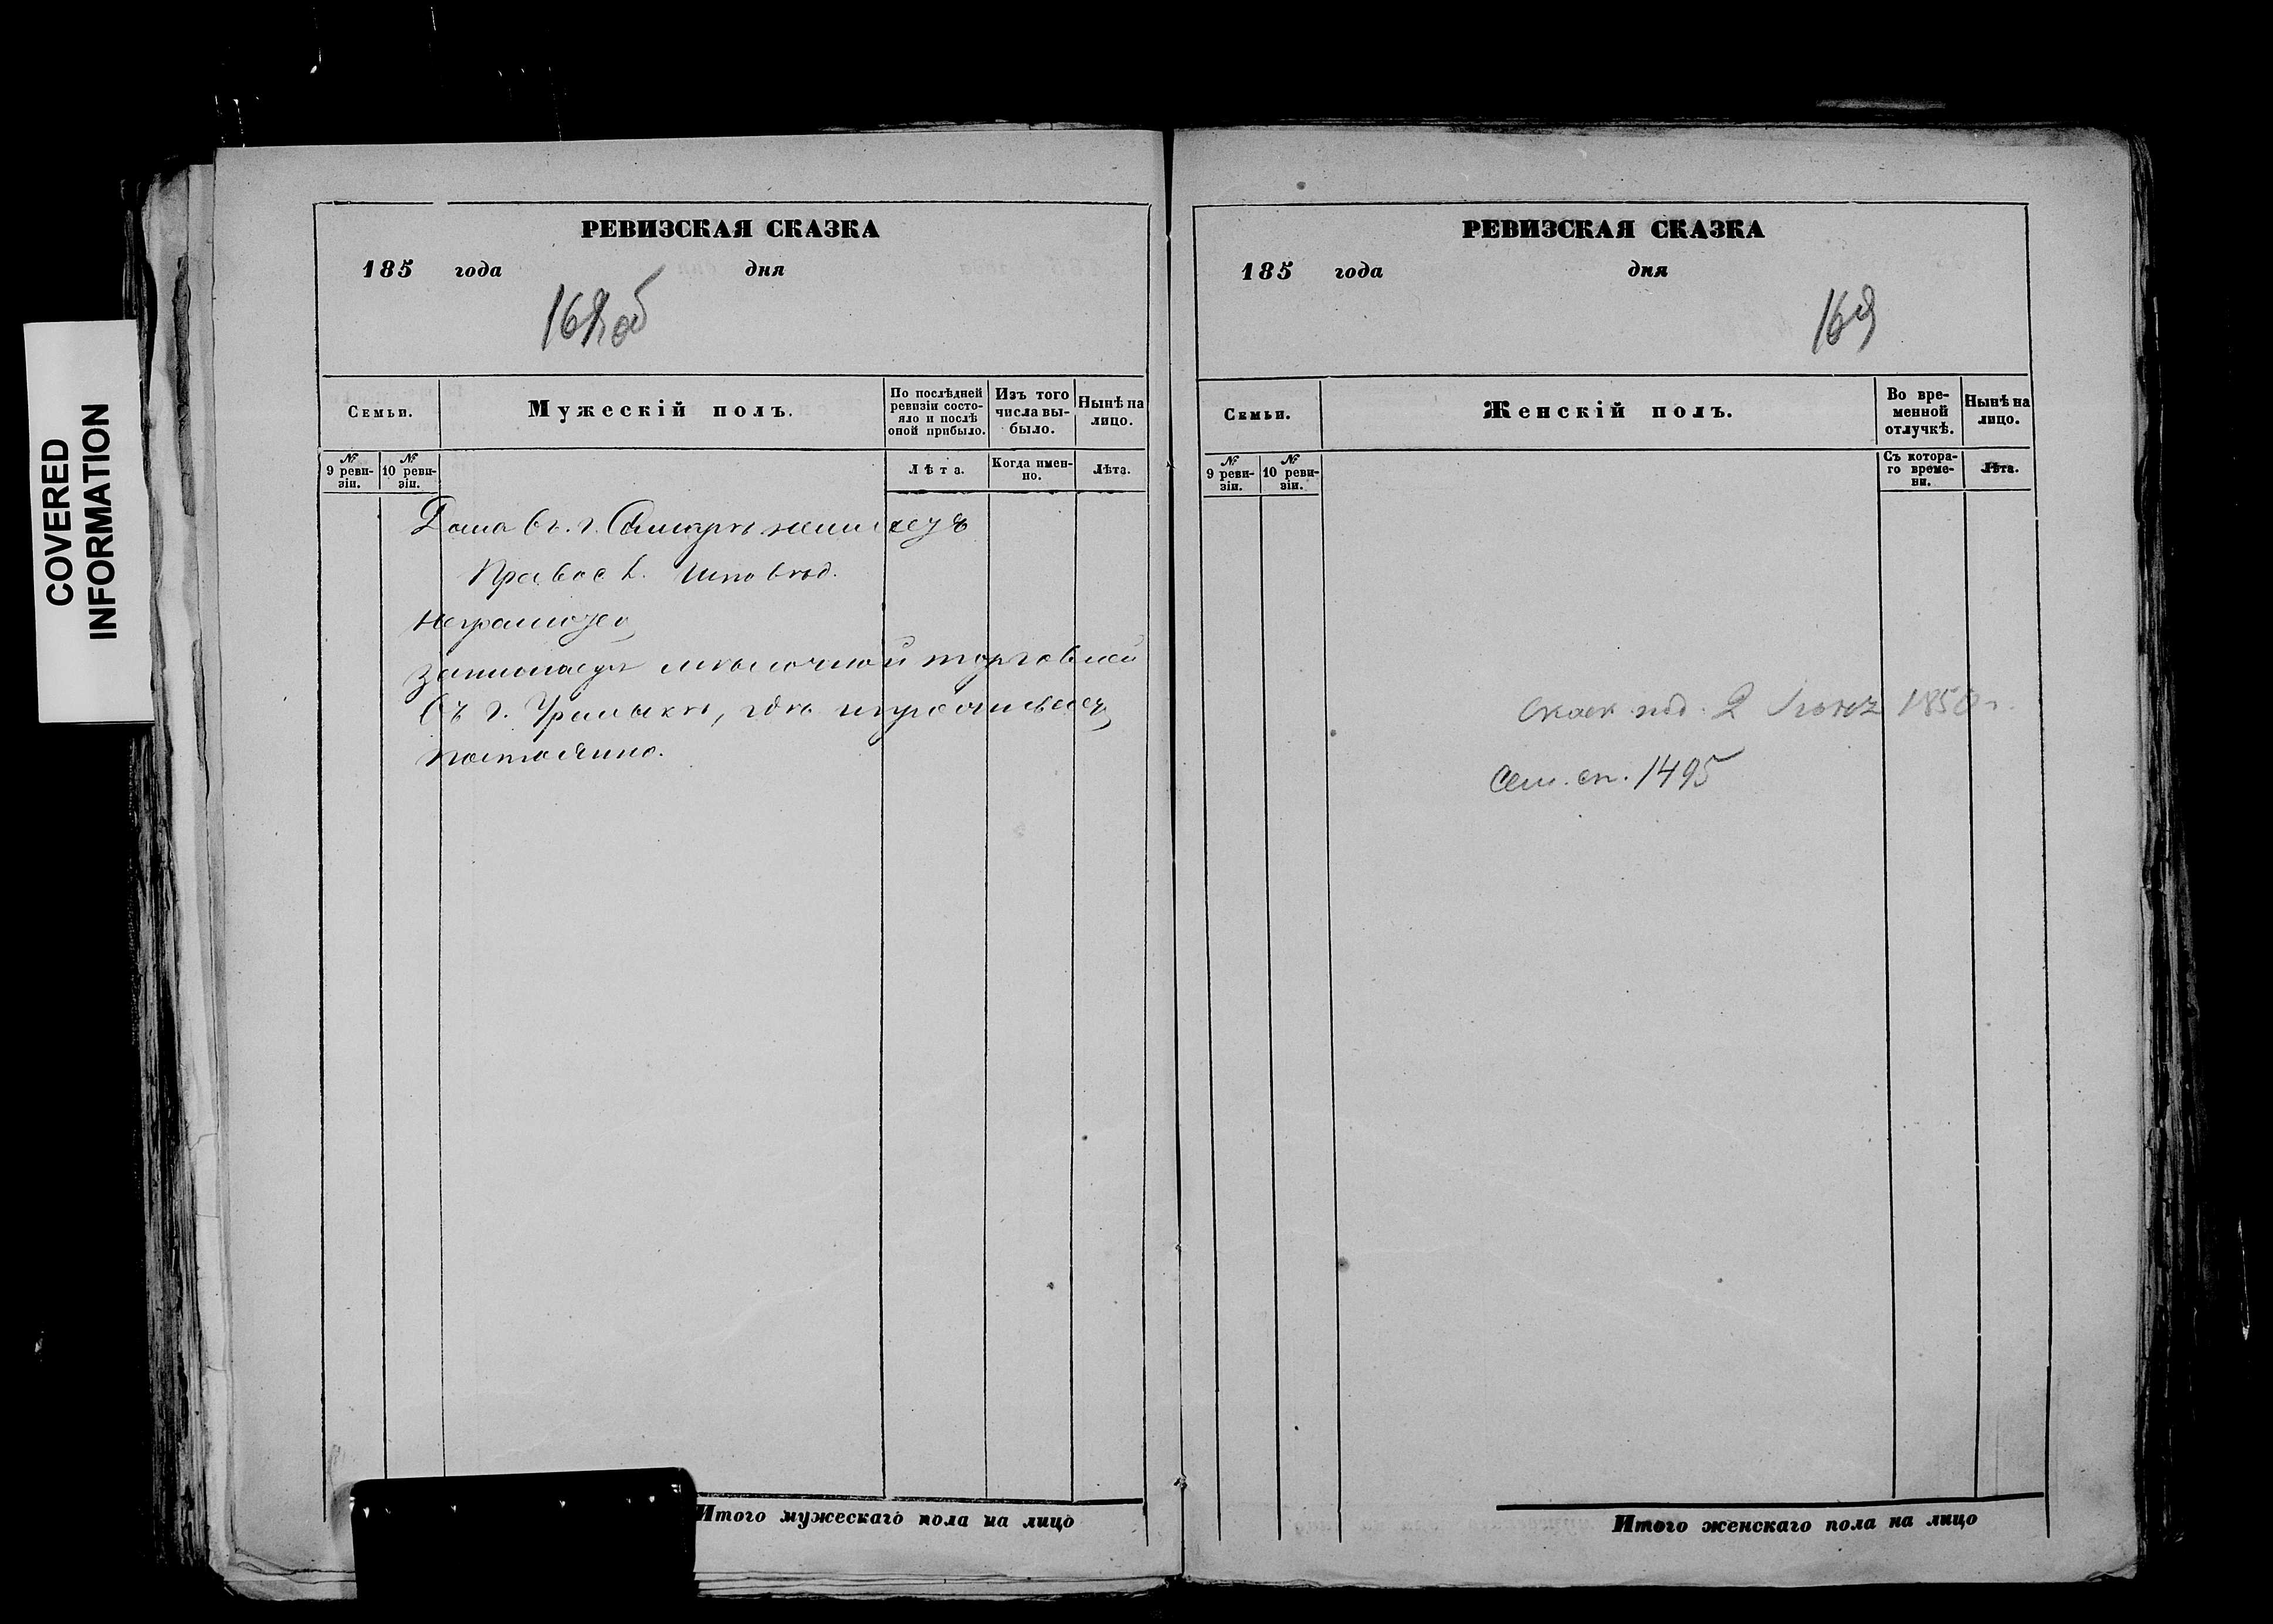 COVERED
INFORMATION
РЕВИЗСКАЯ СКАЗКА
185 года дня
168 об
Семьи.
Мужескій полъ.
По послѣдней ревизіи состо-
яло и послѣ
оной прибыло.
Изъ того
числа вы-
было.
Нынѣ на
лицо.
№ 9 реви-
зіи.
№ 10 реви-
зіи.
Лѣта.
Когда имен-
но.
Лѣта.
Дома въ г. Самарѣ неимеетъ
Правос. Исповѣд.
неграмотен
занимаетъ мѣлочной торговлей
въ г. Уральскѣ, гдѣ и
постоянно.
Итого мужескаго пола на лицо
РЕВИЗСКАЯ СКАЗКА
185 года дня
169
Семьи.
Женскій полъ.
Во вре-
менной
отлучкѣ.
Нынѣ на
лицо.
№ 9 реви-
зіи.
№ 10 реви-
зіи.
Съ котора-
го време-
ни.
Лѣта.
под. 2 1858 г.
Сем. сп. 1495
Итого женскаго пола на лицо